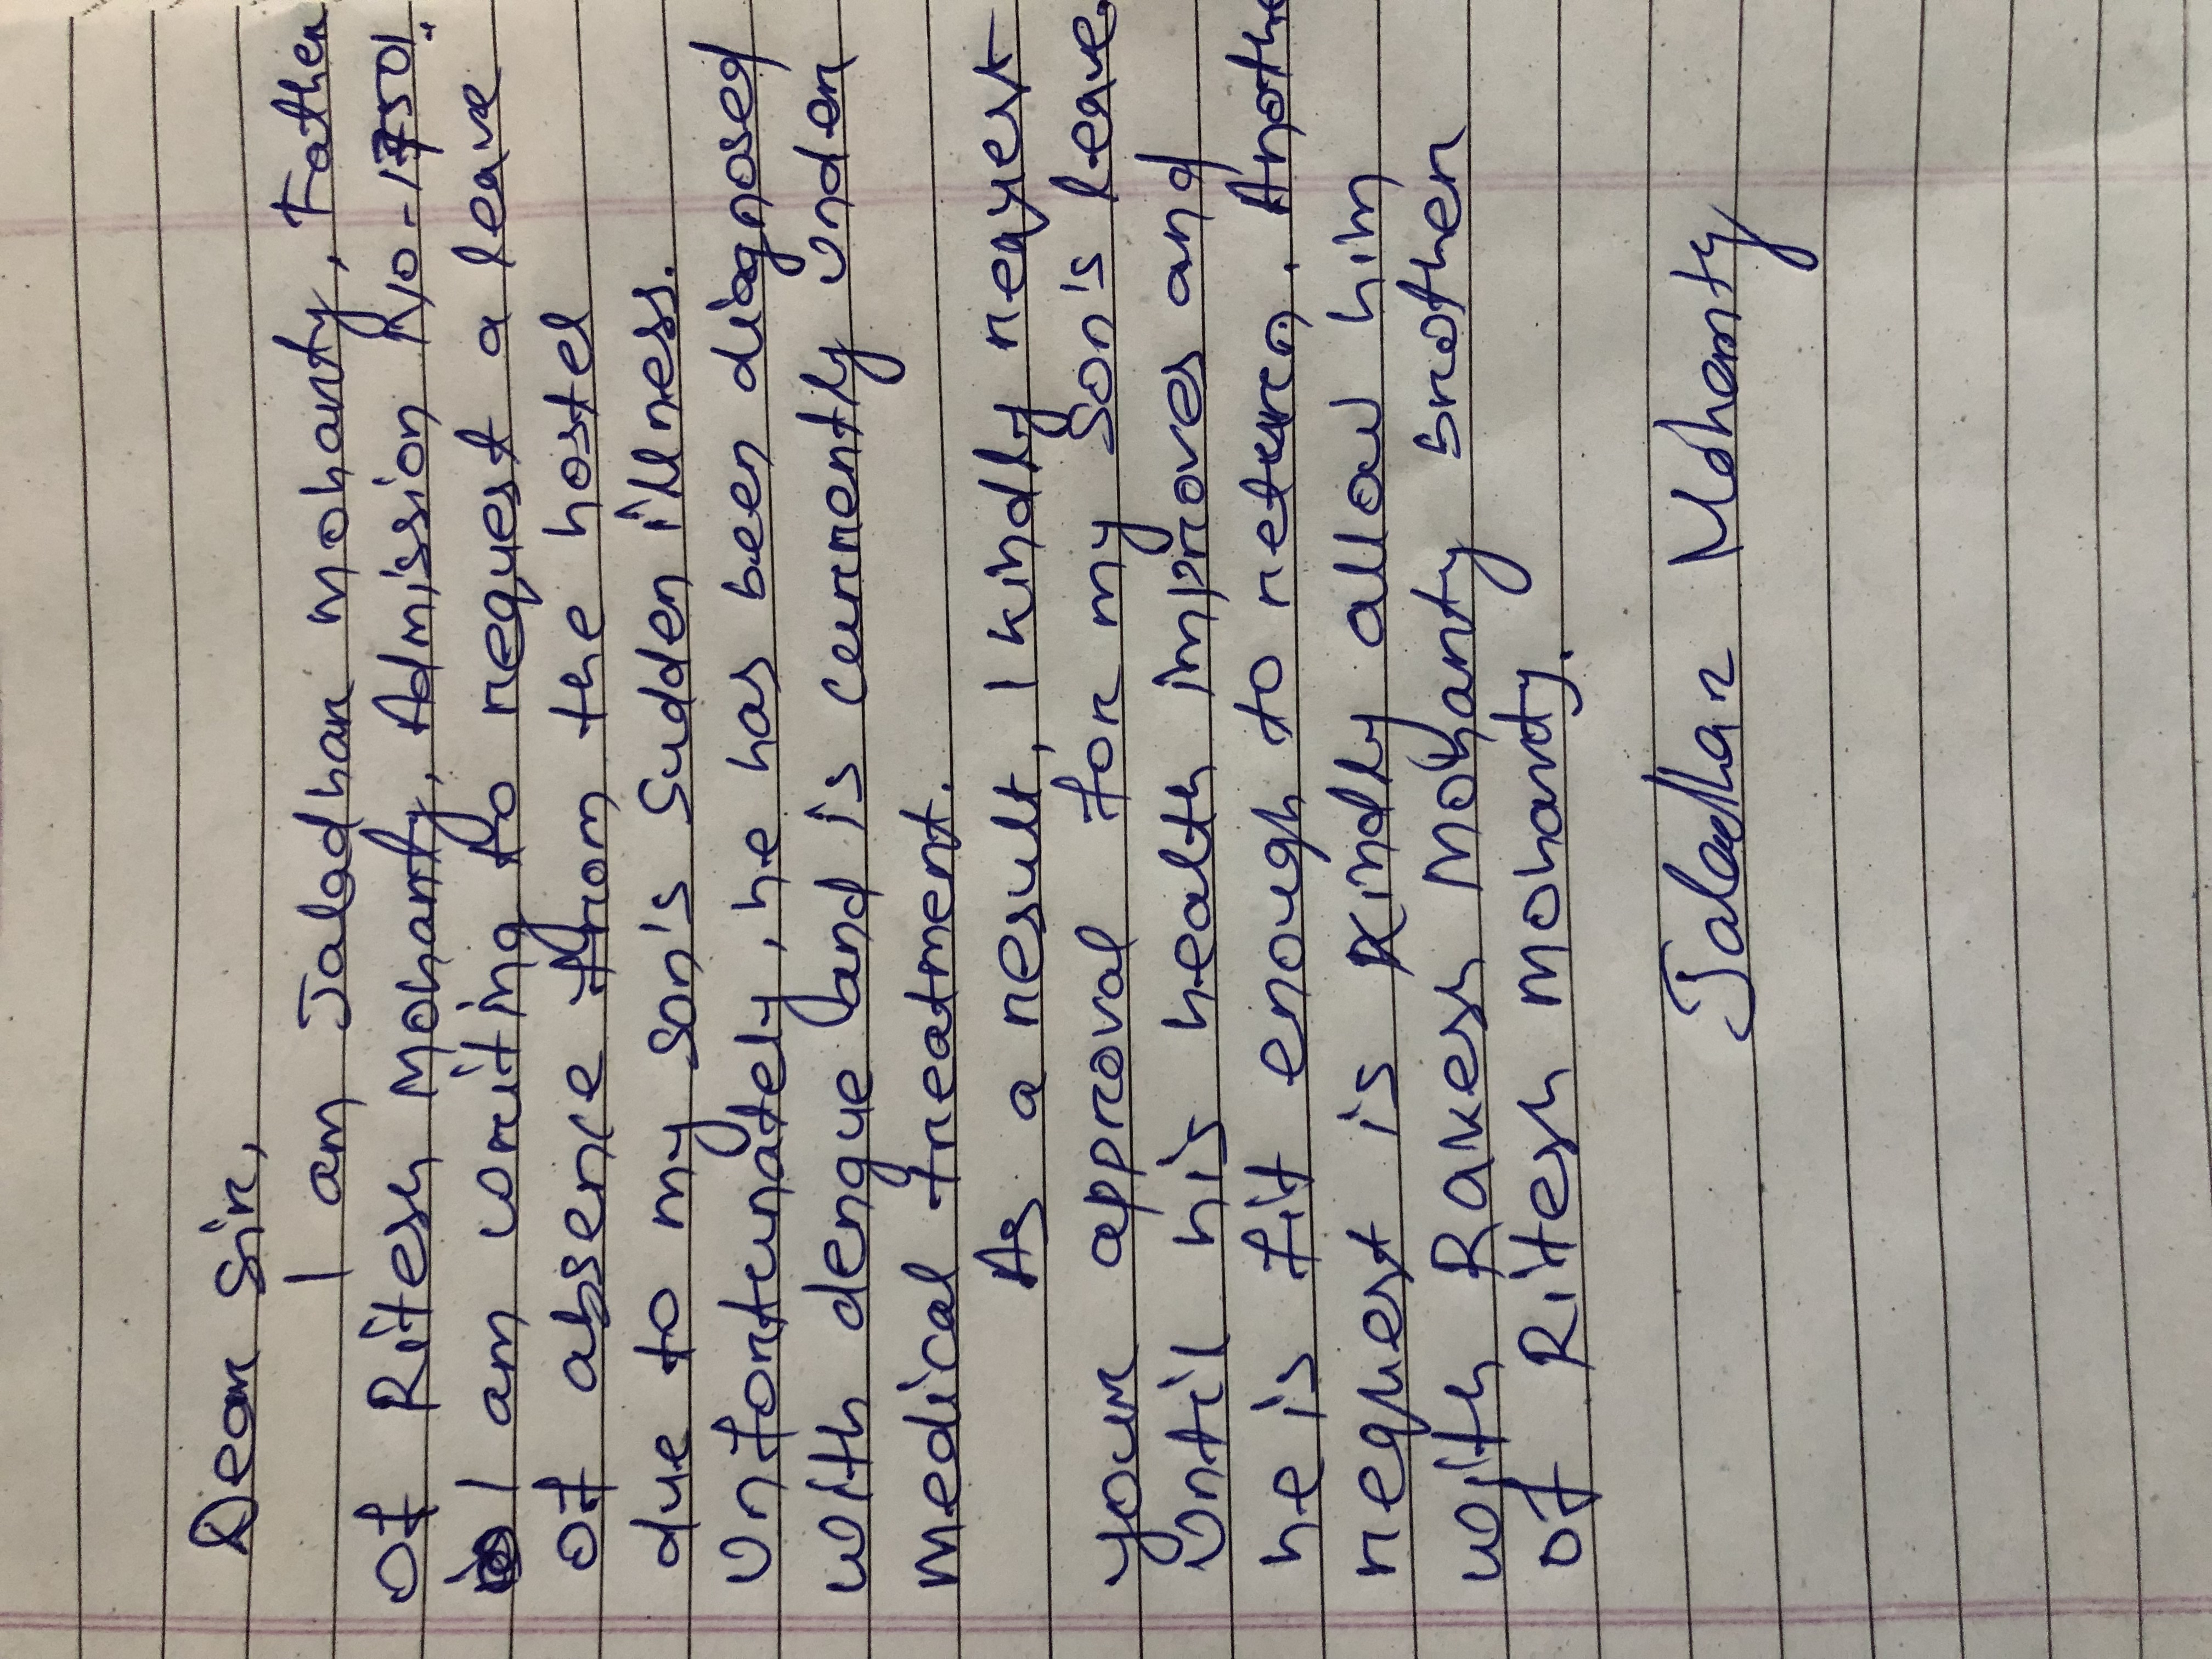 Dear Sir,
I am Jaladhar mohanty, Father
of Ritesh Mohanty, Admission R/o-17501.
I am writing to request a leave
of absence from the hostel
due to my son's Sudden illness.
Unfortunately, he has been diagnosed
with dengue and is currently under
Medical treatment.
As a result, I kindly request
your approval for my son's leave
Until his health improves and
he is fit enough to return. Anothe
request is Kindly allow him
with Rakesh Mohanty brother
of Ritesh mohanty.
Jaladhar Mohanty